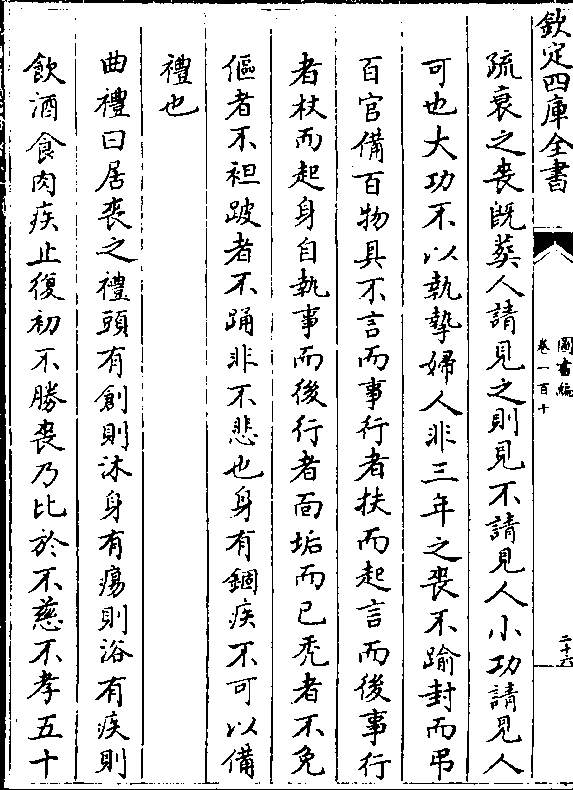 欽定四庫全書
圖書編
卷一百十
二十六
疏衰之喪既葬人請見之則見不請見人小功請見人
可也大功不以執摯婦人非三年之喪不踰封而弔
百官備百物具不言而事行者扶而起言而後事行
者杖而起身自執事而後行者面垢而已禿者不免
傴者不袒跛者不踊非不悲也身有錮疾不可以備
禮也
曲禮曰居喪之禮頭有創則沐身有瘍則浴有疾則
飲酒食肉疾止復初不勝喪乃比於不慈不孝五十